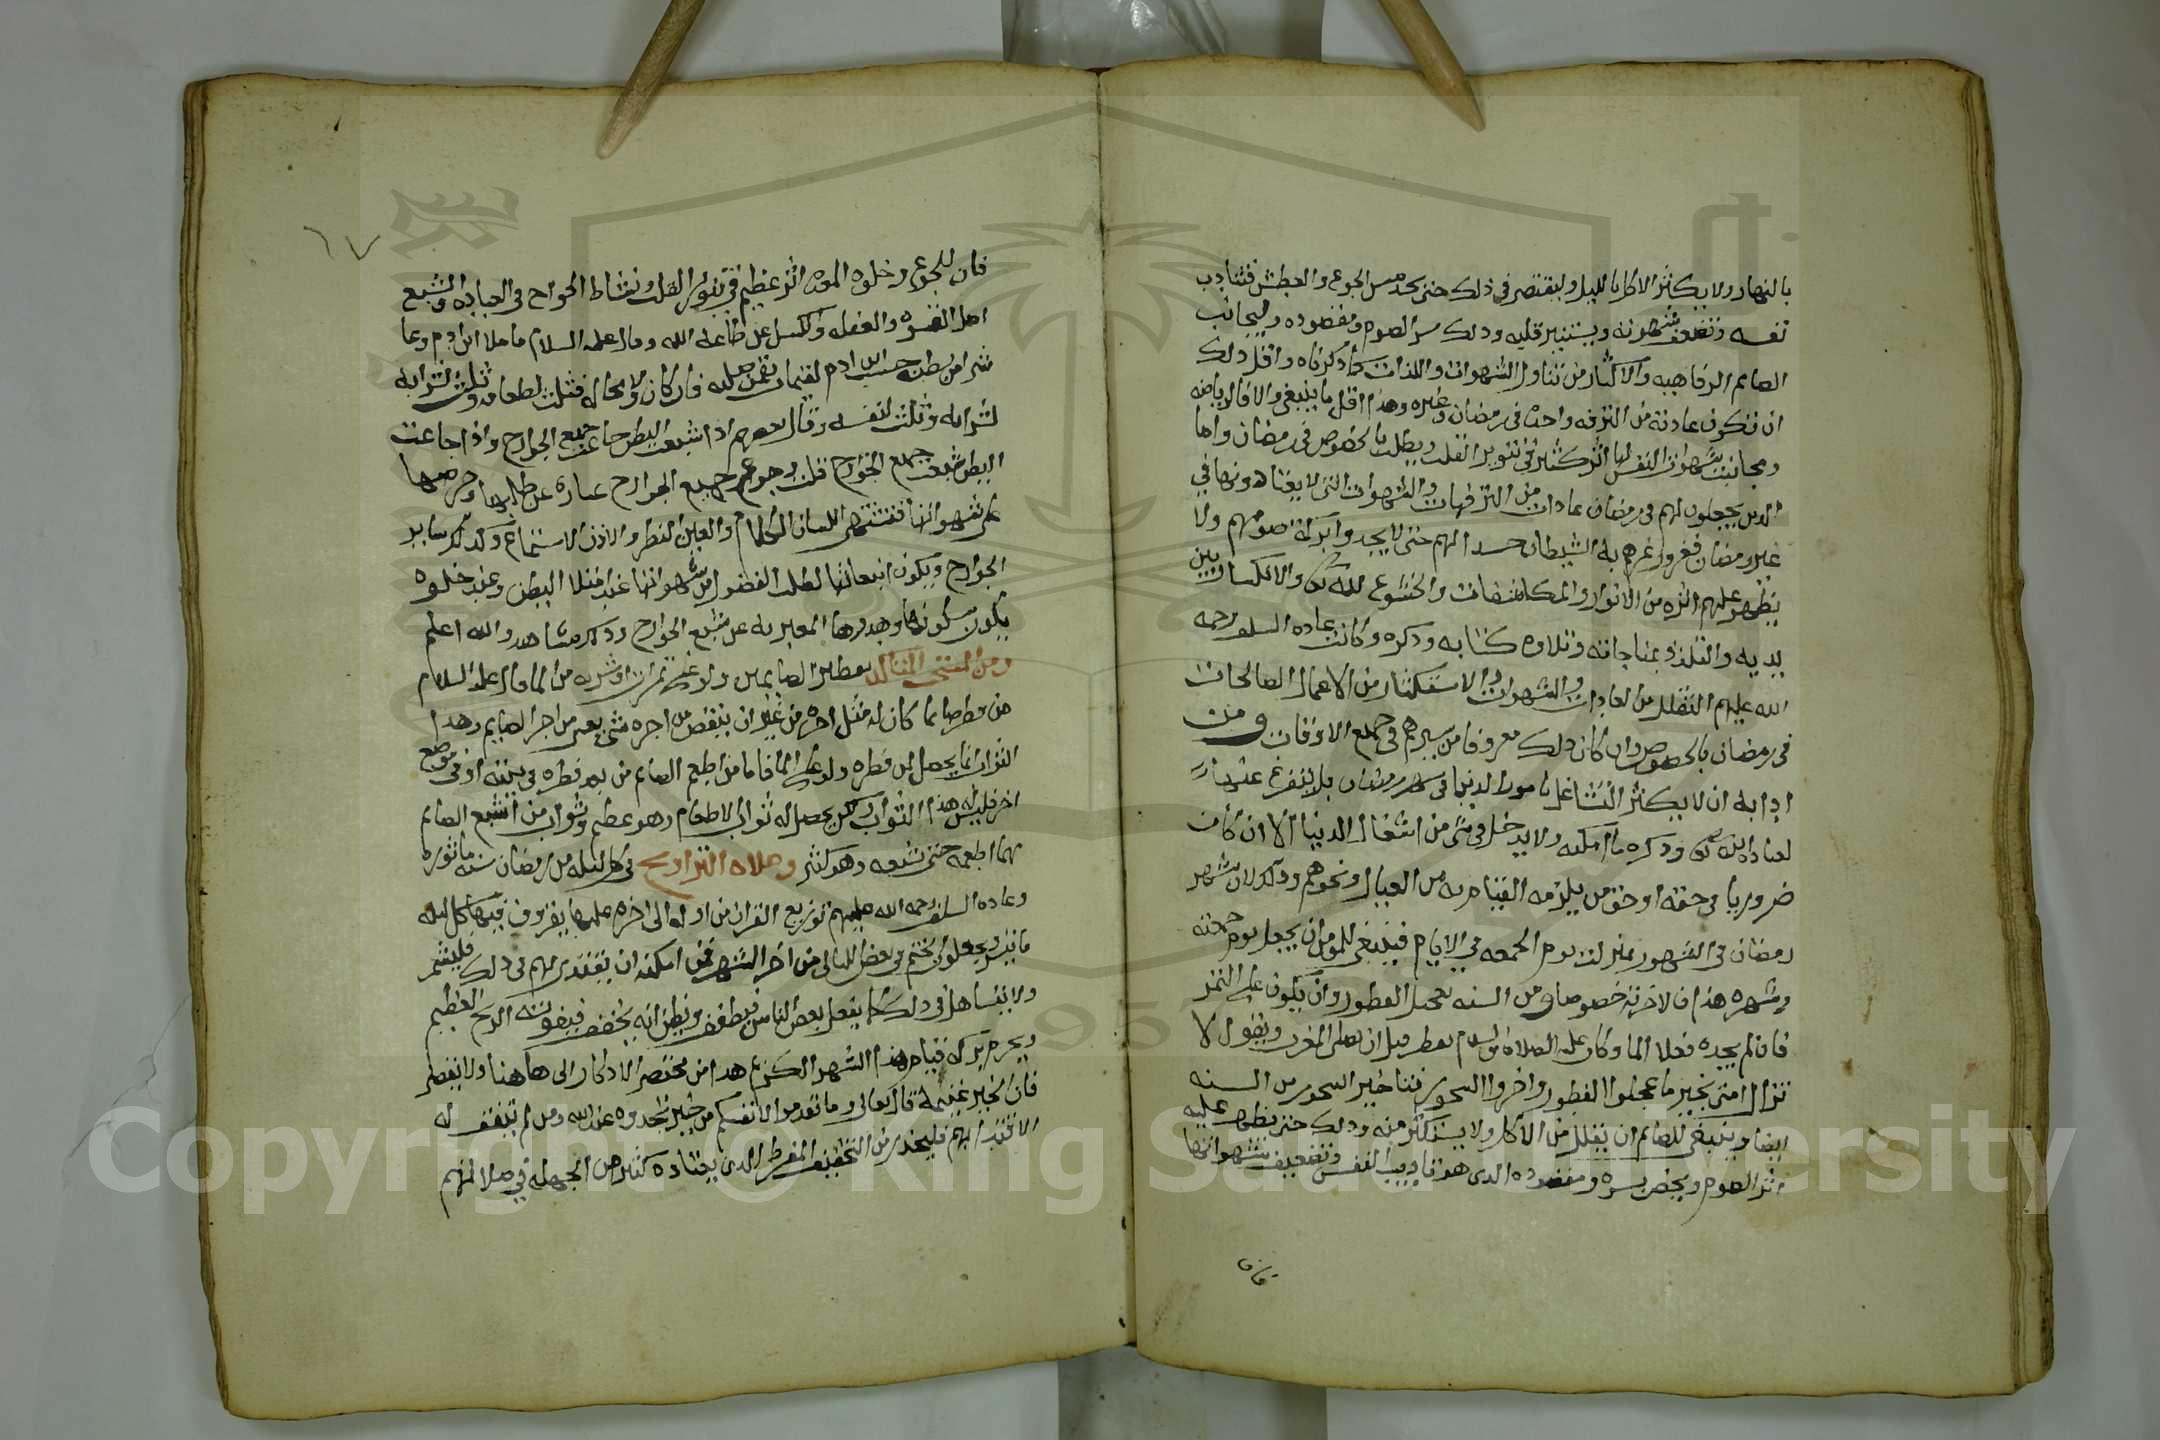 بالنهار ولا يكثر الاكل بالليل وليقتصر في ذلك حتى يجد مس الجوع والعطش فتتادب
نفسه وتضعف شهوته ويستنير قلبه وذلك سر الصوم ومقصوده وليجانب
الصايم الرفاهيه والاكثار من تناول الشهوات واللذات كما ذكرناه واقل ذلك
ان تكون عادته من الترفه واحده في رمضان وغيره وهذا اقل ما ينبغي والا فالرياضه
ومجانبت شهوات النفس لها اثر كثير في تنوير القلب ويطلب بالخصوص في رمضان واما
الدين يجعلون لهم في رمضان عادات من الترفهات والشهوات التي لا يعتادونها في
غير رمضان فغرور غرهم به الشيطان حسدا لهم حتى لا يجدوا بركة صومهم ولا
يظهر عليهم اثره من الانوار والمكاشفات والخشوع لله والانكسار بين
يديه والتلذذ بمناجاته وتلاوه كتابه وذكره وكانت عاده السلف رحمه
الله عليهم التقلل من العادات والشهوات والاستكثار من الاعمال الصالحات
في رمضان بالخصوص وان كان ذلك معروفا من سيرهم في جميع الاوقات ومن
ادابه ان لا يكثر التشاغل بامور الدنيا في شهر رمضان بل يتفرغ عنها
لعباده الله وذكره ما امكنه ولا يدخل في شي من اشغال الدنيا الا ان كان
ضروريا في حقه او حق من يلزمه القيام به من العيال ونحوهم وذلك لان شهر
رمضان في الشهور بمنزلت يوم الجمعه في الايام فينبغي للمؤمن ان يجعل يوم جمعته
وشهره هذا لاخرته خصوصا ومن السنه تعجيل الفطور وان يكون على التمر
فان لم يجده فعلا الما وكان عليه الصلاه والسلام يفطر قبل ان يصلي المغرب ويقول لا
تزال امتي بخير ما عجلوا الفطور واخروا السحور فتاخير السحور من السنه
ايضا وينبغي للصايم ان يقلل من الاكل ولا يستكثر منه وذلك حتى يظهر عليه
اثر الصوم ويحظى بسره ومقصوده الدى هو تاديب النفس وتضعيف شهواتها
فان
٦٧
فان للجوع وخلوه المعده اثر عظيم في تنوير القلب ونشاط الجوارح في العباده والشبع
اصل القسوه والغفله والكسل عن طاعه الله وقال عليه السلام ما ملا ابن ادم وعا
شر من بطنه حسب ابن ادم لقيمات يقمن صلبه فان كان ولا محاله فثلث لطعامه وثلث لشرابه
لشرابه وثلث لنفسه وقال بعضهم اذا شبعت البطن جاعت جميع الجوارح واذا جاعت
البطن شبعت جميع الجوارح قلت وجوع جميع الجوارح عباره عن طلبها وحرصها
على شهواتها فتشتهي اللسان الكلام والعين النظر والاذن الاستماع وكذلك ساير
الجوارح ويكون انبعاثها لطلب الفضول من شهواتها عند امتلا البطن وعند خلوه
يكون سكونها وهدوها المعبر به عن شبع الجوارح وذلك مشاهد والله اعلم
ومن المستحب المتاكد تفطير الصايمين ولو على تمرات او شربه من الما قال عليه السلام
من فطر صايما كان له مثل اجره من غير ان ينقص من اجره شي يعني من اجر الصايم وهذا
الثواب انما يحصل لمن فطره ولو على الما فاما من اطعم الصايم من بعد فطره في بيته او في موضع
اخر فليس له هذا الثواب ولكن يحصل له ثواب الاطعام وهو عظيم وثواب من اشبع الصايم
مما اطعمه حتى شبعه وهو كثير وصلاه التراويح في كل ليله من رمضان سنه ماثوره
وعاده السلف رحمه الله عليهم توزيع القران من اوله الى اخره عليها يقرون فيها كل ليله
ما تيسر ويجعلون الختم في بعض الليالي من اخر الشهر فمن امكنه ان يقتدي بهم في ذلك فليشمر
ولا يتساهل في ذلك كما يفعل بعض الناس فيطفف ويظن انه يخفف فيفوته الربح العظيم
ويحرم بركه قيام هذا الشهر الكريم هدا من مختصر الاذكار الى هاهنا ولا يقصر
فان الخير غنيمة قال تعالى وما تقدموا لانفسكم من خير تجدوه عند الله ومن لم يتفق له
الاقتدا بهم فليحذر من التخفيف المفرط الدى يعتاده كثير من الجهله في صلاتهم